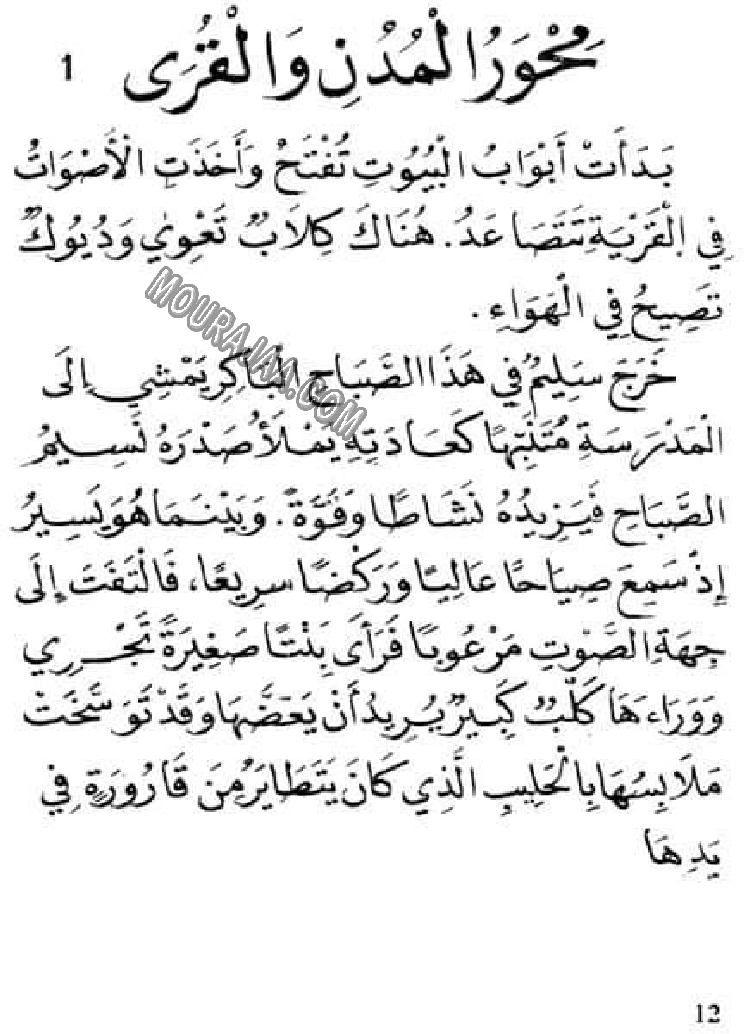 مِحْوَرُ الْمُدُنِ وَالْقُرَى 1
بَدَأَتْ أَبْوَابُ الْبُيُوتِ تُفْتَحُ وَأَخَذَتِ الْأَصْوَاتُ
فِي الْقَرْيَةِ تَتَصَاعَدُ. هُنَاكَ كِلَابٌ تَعْوِي وَدُيُوكٌ
تَصِيحُ فِي الْهَوَاءِ.
خَرَجَ سَلِيمٌ فِي هَذَا الصَّبَاحِ الْبَاكِرِ يَمْشِي إِلَى
الْمَدْرَسَةِ مُنْتَبِهًا كَعَادَتِهِ يَمْلَأُ صَدْرَهُ نَسِيمُ
الصَّبَاحِ فَيَزِيدُهُ نَشَاطًا وَقُوَّةً. وَبَيْنَمَا هُوَ يَسِيرُ
إِذْ سَمِعَ صِيَاحًا عَالِيًا وَرَكْضًا سَرِيعًا، فَالْتَفَتَ إِلَى
جِهَةِ الصَّوْتِ مَرْعُوبًا فَرَأَى بِنْتًا صَغِيرَةً تَجْرِي
وَوَرَاءَهَا كَلْبٌ كَبِيرٌ يُرِيدُ أَنْ يَعَضَّهَا وَقَدْ تَوَسَّخَتْ
مَلَابِسُهَا بِالْحَلِيبِ الَّذِي كَانَ يَتَطَايَرُ مِنَ قَارُورَةٍ فِي
يَدِهَا
MOURAJAA.COM
12